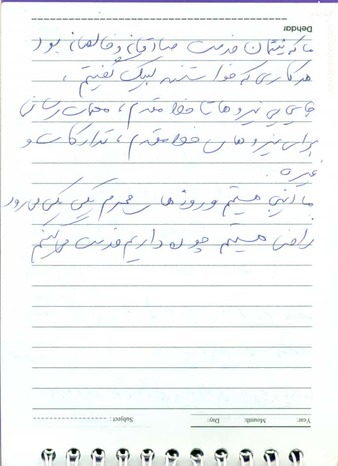 Dehdar
ما که نیتمان خدمت صادقانه و خالصانه بود
هر کاری که خواستند لبیک گفتیم ،
جابجایی نیروها تا خط مقدم ، مهمات رسانی
برای نیروهای خط مقدم ، تدارکات و
غیره .
ما اینجا هستیم و روزهای محرم یکی یکی می رود
راضی هستیم چون داریم خدمت می کنیم
Year: Mounth: Day: Subject: